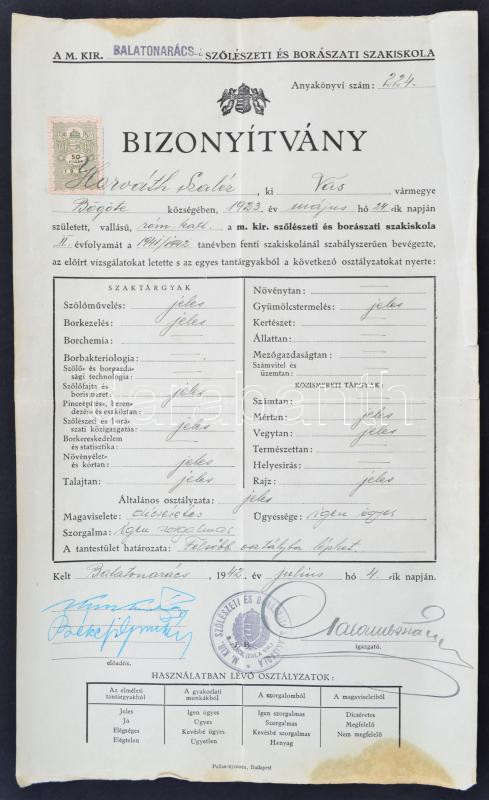 A M. KIR. BALATONARÁCS-i SZŐLÉSZETI ÉS BORÁSZATI SZAKISKOLA
Anyakönyvi szám: 224.
BIZONYÍTVÁNY
50
Horváth Szaléz, ki Vas vármegye
Bögöte községében, 1923. év május hó 24-ik napján
született, vallású, róm. kat. a m. kir. szőlészeti és borászati szakiskola
II. évfolyamát a 1941/1942 tanévben fenti szakiskolánál szabályszerűen bevégezte,
az előírt vizsgálatokat letette s az egyes tantárgyakból a következő osztályzatokat nyerte:
SZAKTÁRGYAK
Szőlőművelés: jeles
Borkezelés: jeles
Borchemia: —
Borbakteriologia: —
Szőlő- és borgazda-
sági technologia: —
Szőlőfajta és
borismeret: jeles
Pinceépítés, beren-
dezés és eszköztan: —
Szőlészeti és borá-
szati közigazgatás: jeles
Borkereskedelem
és statisztika: —
Növényélet-
és kórtan: jeles
Talajtan: jeles
Növénytan: —
Gyümölcstermelés: jeles
Kertészet: —
Állattan: —
Mezőgazdaságtan: —
Számvitel és
üzemtan:
KÖZISMERETI TÁRGYAK:
Számtan: —
Mértan: jeles
Vegytan: jeles
Természettan: —
Helyesírás: —
Rajz: jeles
Általános osztályzata: jeles
Magaviselete: dicséretes Ügyessége: igen ügyes
Szorgalma: igen szorgalmas
A tantestület határozata: Felsőbb osztályba léphet.
Kelt Balatonarács, 1942. év július hó 4.-ik napján.
M. KIR. SZŐLÉSZETI ÉS BORÁSZATI SZAKISKOLA
előadók.
igazgató.
HASZNÁLATBAN LÉVŐ OSZTÁLYZATOK:
Az elméleti tantárgyakból A gyakorlati munkákból A szorgalomból A magaviseletből
Jeles Igen ügyes Igen szorgalmas Dícséretes
Jó Ügyes Szorgalmas Megfelelő
Elégséges Kevésbé ügyes Kevésbé szorgalmas Nem megfelelő
Elégtelen Ügyetlen Hanyag
Pallas-nyomda, Budapest
darabanth